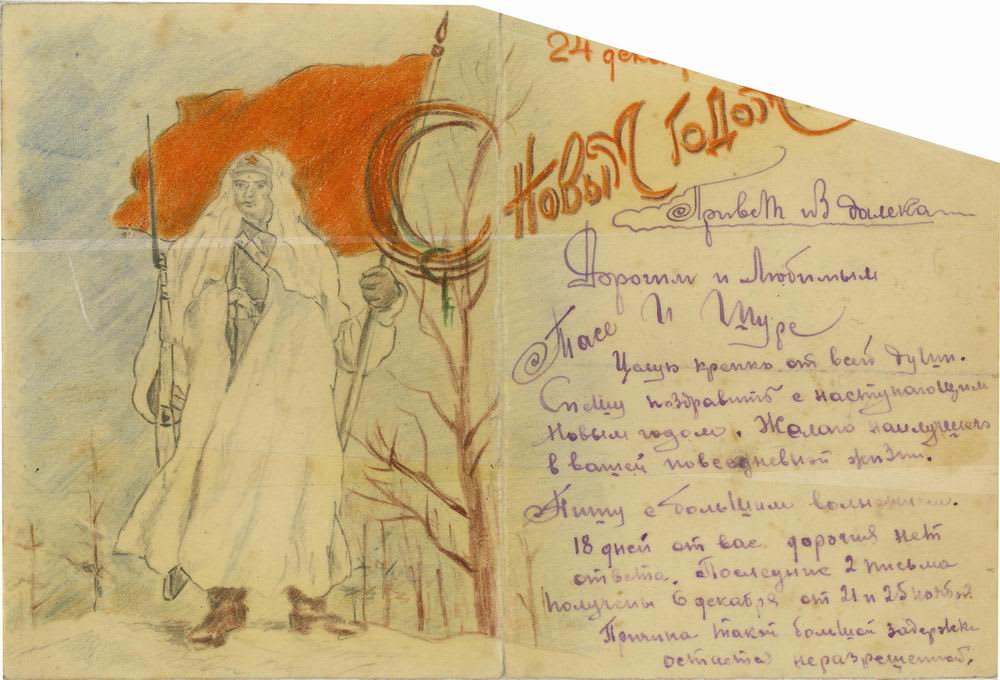 24
С Новым Годом
Привет из далека
Дорогим и Любимым
Тасе И Шуре
Целую крепко от всей души.
Спешу поздравить с наступающим
Новым годом. Желаю наилучшего
в вашей повседневной жизни.
Пишу с большим волнением.
18 дней от вас дорогия нет
ответа. Последние 2 письма
получены 6 декабря от 21 и 25 ноября.
Причина такой большой задержки
остается неразрешенной.